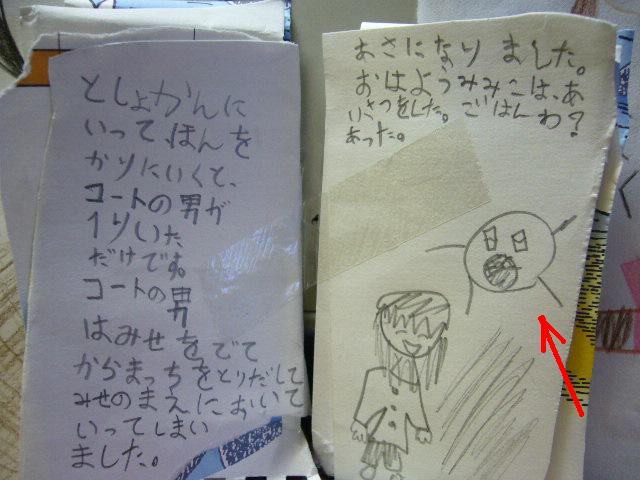 としょかんに
いって、ほんを
かりにいくと、
コートの男が
1りいた
だけです。
コートの男
はみせをでて
からまっちをとりだして
みせのまえにおいて
いってしまい
ました。
あさになりました。
おはようみみこは、あ
いさつをした。ごはんわ?
あった。